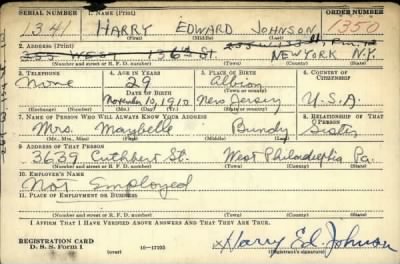 SERIAL NUMBER 1. NAME (Print) ORDER NUMBER
1341 HARRY EDWARD JOHNSON 1350
(First) (Middle) (Last)
2. ADDRESS (Print)
255 WEST 156th St. NEW YORK N.Y.
(Number and street or R. F. D. number) (Town) (County) (State)
3. TELEPHONE 4. AGE IN YEARS 5. PLACE OF BIRTH 6. COUNTRY OF CITIZENSHIP
None 29 Albion
DATE OF BIRTH (Town or county)
November 10, 1910 New Jersey U.S.A.
(Exchange) (Number) (Mo.) (Day) (Yr.) (State or country)
7. NAME OF PERSON WHO WILL ALWAYS KNOW YOUR ADDRESS 8. RELATIONSHIP OF THAT PERSON
Mrs. Maybelle Bundy Sister
(Mr., Mrs., Miss) (First) (Middle) (Last)
9. ADDRESS OF THAT PERSON
3639 Cuthbert St. West Philadelphia Pa.
(Number and street or R. F. D. number) (Town) (County) (State)
10. EMPLOYER'S NAME
Not Employed
11. PLACE OF EMPLOYMENT OR BUSINESS
(Number and street or R. F. D. number) (Town) (County) (State)
I AFFIRM THAT I HAVE VERIFIED ABOVE ANSWERS AND THAT THEY ARE TRUE.
REGISTRATION CARD
D. S. S. Form 1 16-17105 x Harry Ed. Johnson
(Registrant's signature)